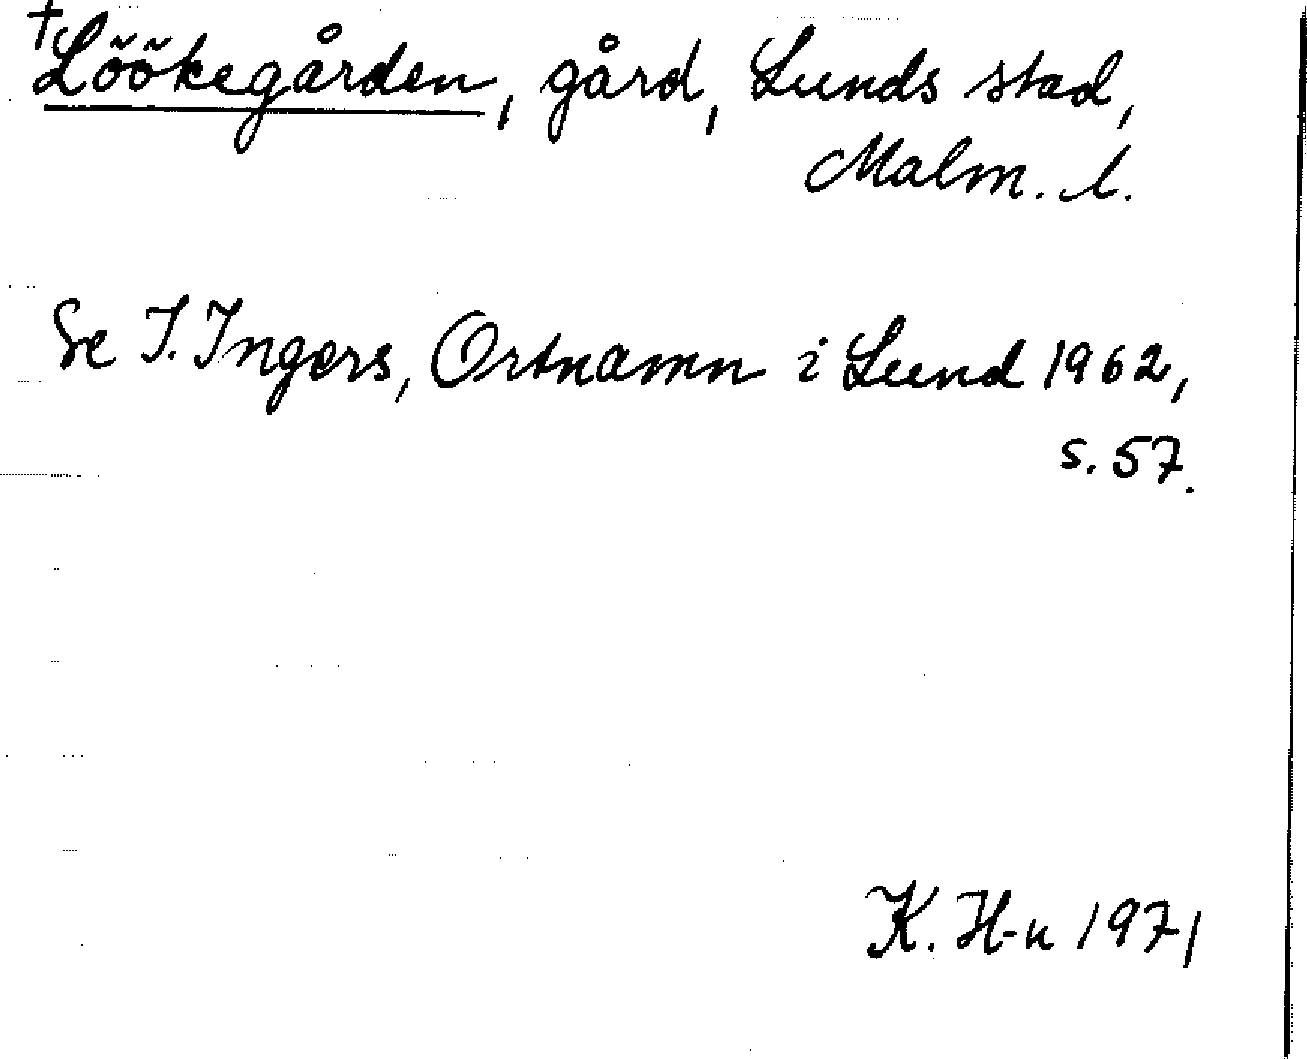 †Löökegården, gård, Lunds stad,
Malm. l.
Se I. Ingers, Ortnamn i Lund 1962,
s. 57.
K. H-n 1971